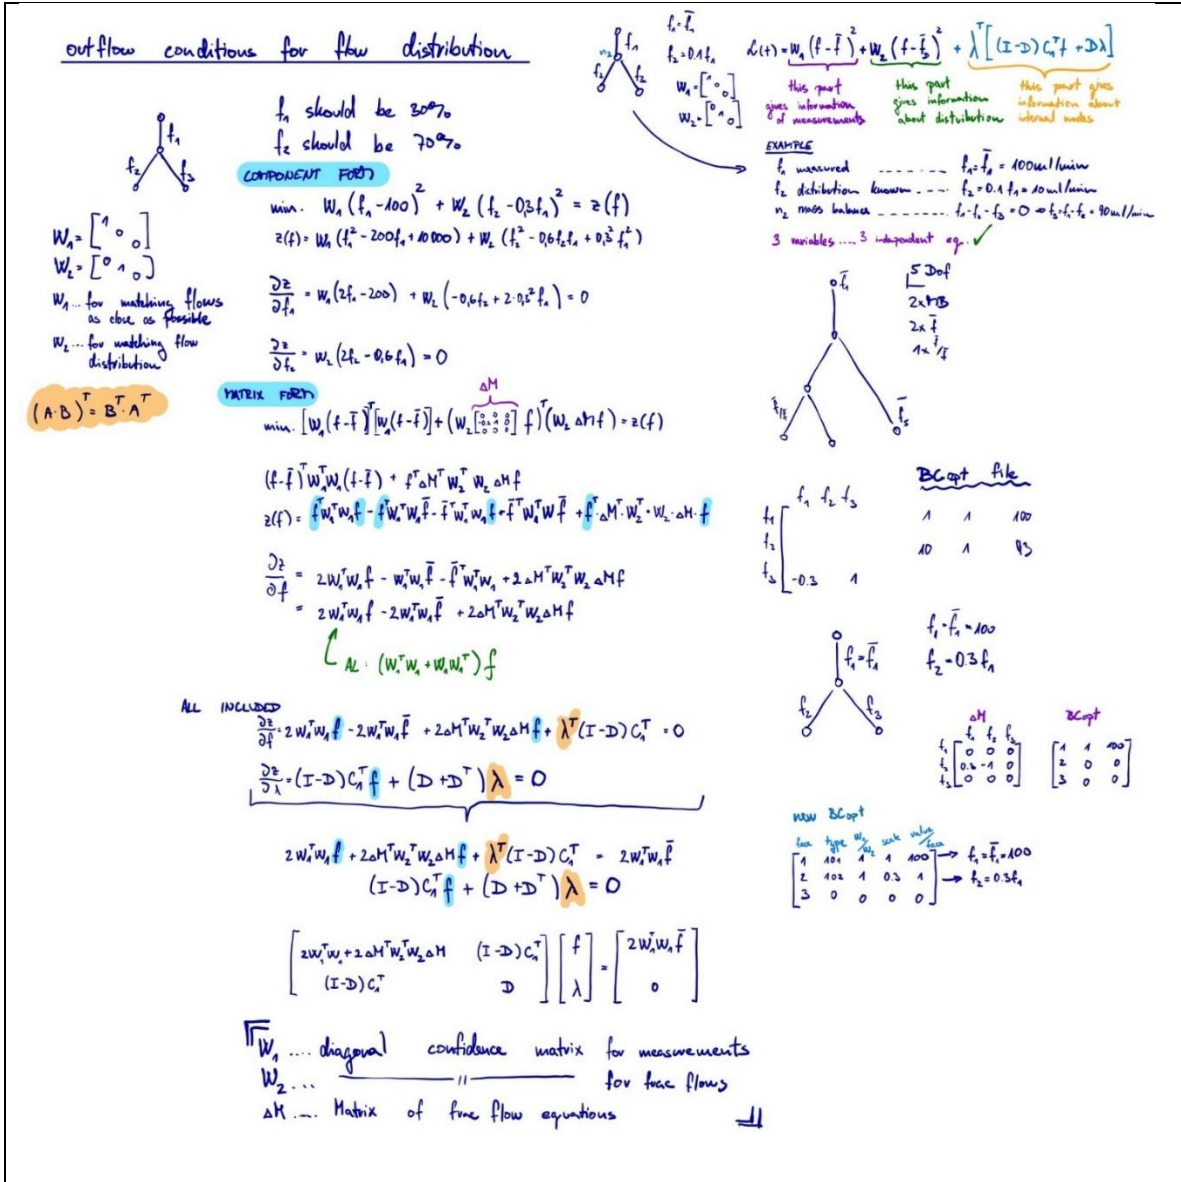 outflow conditions for flow distribution
f₁ should be 30%
f₂ should be 70%
f₁
f₂ f₃
W₁ = [1 0 0]
W₂ = [0 1 0]
W₁ ... for matching flows
as close as possible
W₂ ... for matching flow
distribution
(A·B)ᵀ = Bᵀ·Aᵀ
COMPONENT FORM
min. W₁(f₁-100)² + W₂(f₂-0,3f₁)² = z(f)
z(f) = W₁(f₁²-200f₁+10000) + W₂(f₂²-0,6f₂f₁+0,3²f₁²)
∂z/∂f₁ = W₁(2f₁-200) + W₂(-0,6f₂+2·0,3²f₁) = 0
∂z/∂f₂ = W₂(2f₂-0,6f₁) = 0
MATRIX FORM
ΔM
min. [W₁(f-f̄)]ᵀ[W₁(f-f̄)] + (W₂ f)ᵀ(W₂ ΔM f) = z(f)
(f-f̄)ᵀW₁ᵀW₁(f-f̄) + fᵀΔMᵀW₂ᵀW₂ΔMf
z(f) = fᵀW₁ᵀW₁f - fᵀW₁ᵀW₁f̄ - f̄ᵀW₁ᵀW₁f + f̄ᵀW₁ᵀWf̄ + fᵀ·ΔMᵀ·W₂ᵀ·W₂·ΔM·f
∂z/∂f = 2W₁ᵀW₁f - W₁ᵀW₁f̄ - f̄ᵀW₁ᵀW₁ + 2ΔMᵀW₂ᵀW₂ΔMf
= 2W₁ᵀW₁f - 2W₁ᵀW₁f̄ + 2ΔMᵀW₂ᵀW₂ΔMf
AL: (W₁ᵀW₁ + W₁W₁ᵀ)f
ALL INCLUDED
∂z/∂f = 2W₁ᵀW₁f - 2W₁ᵀW₁f̄ + 2ΔMᵀW₂ᵀW₂ΔMf + λᵀ(I-D)C₁ᵀ = 0
∂z/∂λ = (I-D)C₁ᵀf + (D+Dᵀ)λ = 0
2W₁ᵀW₁f + 2ΔMᵀW₂ᵀW₂ΔMf + λᵀ(I-D)C₁ᵀ = 2W₁ᵀW₁f̄
(I-D)C₁ᵀf + (D+Dᵀ)λ = 0
[2W₁ᵀW₁+2ΔMᵀW₂ᵀW₂ΔM (I-D)C₁ᵀ] [f] = [2W₁ᵀW₁f̄]
[(I-D)C₁ᵀ D] [λ] [0]
W₁ .... diagonal confidence matrix for measurements
W₂ ... —— " —— for frac flows
ΔM .... Matrix of frac flow equations
n₂ f₁
f₂ f₂
f₁ = f̄₁
f₂ = 0.1f₁
W₁ = [1 0 0]
W₂ = [0 1 0]
L(t) = W₁(f-f̄)² + W₂(f-f̄₃)² + λᵀ[(I-D)C₁ᵀf + Dλ]
this part gives information of measurements
this part gives information about distribution
this part gives information about internal nodes
EXAMPLE
f₁ measured ------- f₁ = f̄₁ = 100ml/min
f₂ distribution known ---- f₂ = 0.1f₁ = 10ml/min
n₂ mass balance ------- f₁-f₂-f₃ = 0 ⇒ f₃=f₁-f₂ = 90ml/min
3 variables .... 3 independent eq. ✓
f̄₁
f̄₅
5 Dof
2x MB
2x f̄
1x f/f
BCopt file
1 1 100
10 1 93
f₁ f₂ f₃
f₁
f₂
f₃ -0.3 1
f₁ = f̄₁
f₂ f₃
f₁ = f̄₁ = 100
f₂ = 0.3f₁
ΔM BCopt
f₁ f₂ f₃
f₁ [0 0 0] [1 1 100]
f₂ [0.3 -1 0] [2 0 0]
f₃ [0 0 0] [3 0 0]
new BCopt
face type W₁/W₂ scale value/face
[1 101 1 1 100] → f₁ = f̄₁ = 100
[2 102 1 0.3 1] → f₂ = 0.3f₁
[3 0 0 0 0]